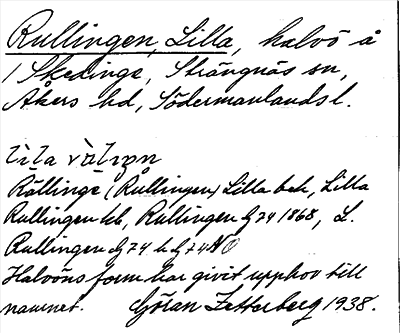 Rullingen, Lilla, halvö å
/ Skeinge, Strängnäs sn,
Åkers hd, Södermanlands l.
lila
Rällinge (Rullingen) Lilla bek, Lilla
Rullingen kb, Rullingen G 74 1868, L.
Rullingen dg 74
Halvöns form har givit upphov till
namnet. Göran Zetterberg 1938.